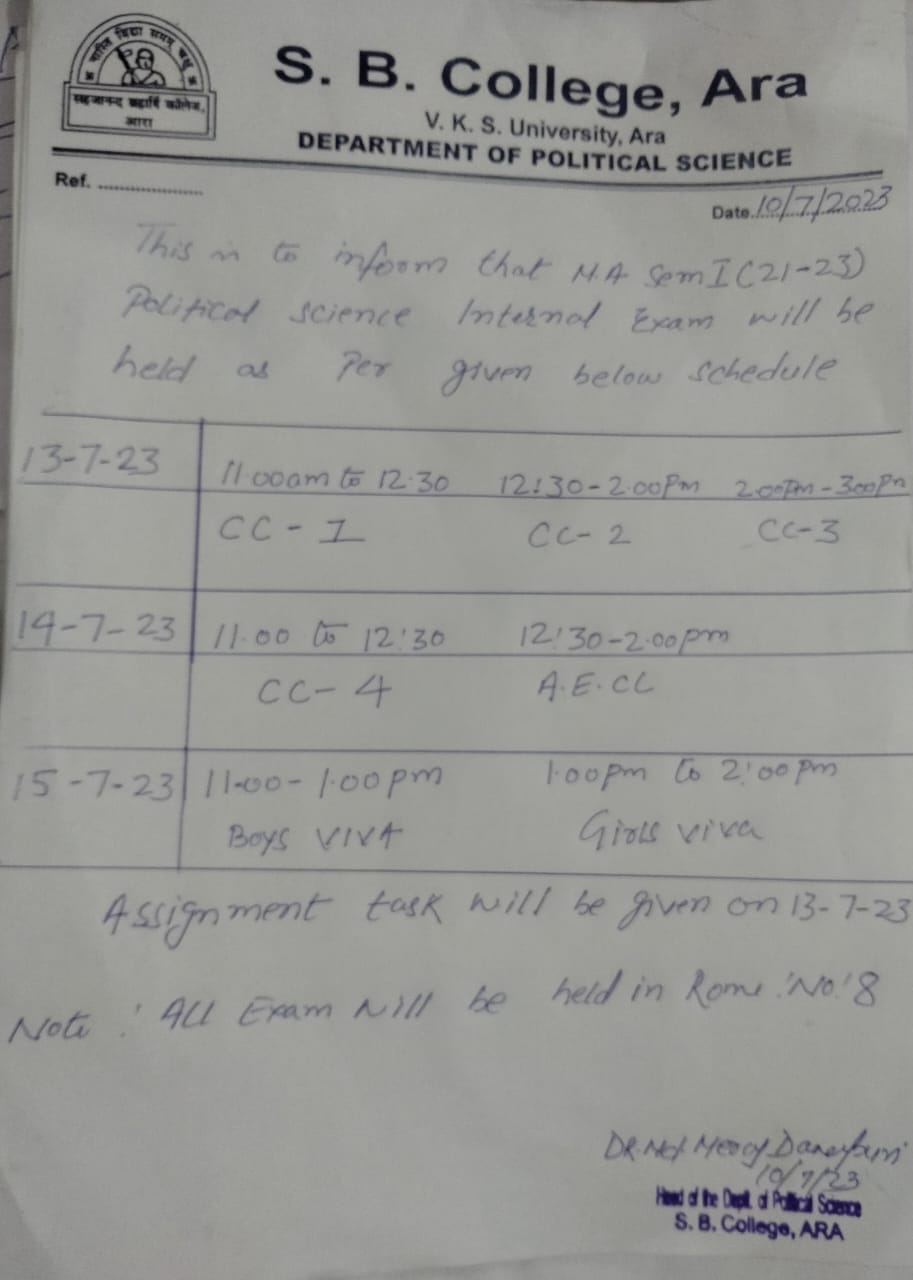 नास्ति विद्या समम् चक्षु
सहजानन्द ब्रह्मर्षि कॉलेज,
आरा
S. B. College, Ara
V. K. S. University, Ara
DEPARTMENT OF POLITICAL SCIENCE
Ref. ....................
Date. 10/7/2023
This is to inform that M.A Sem I (21-23)
Political science Internal Exam will be
held as Per given below schedule
13-7-23 11.00am to 12.30 12:30-2.00Pm 2.00Pm-3.00Pm
CC-1 CC-2 CC-3
14-7-23 11.00 to 12:30 12:30-2.00pm
CC-4 A.E.CC
15-7-23 11.00-1.00pm 1.00pm to 2:00pm
Boys VIVA Girls viva
Assignment task will be given on 13-7-23
Note : All Exam will be held in Rome No. 8
DR. Md
10/7/23
Head of the Deptt. of Political Science
S. B. College, ARA